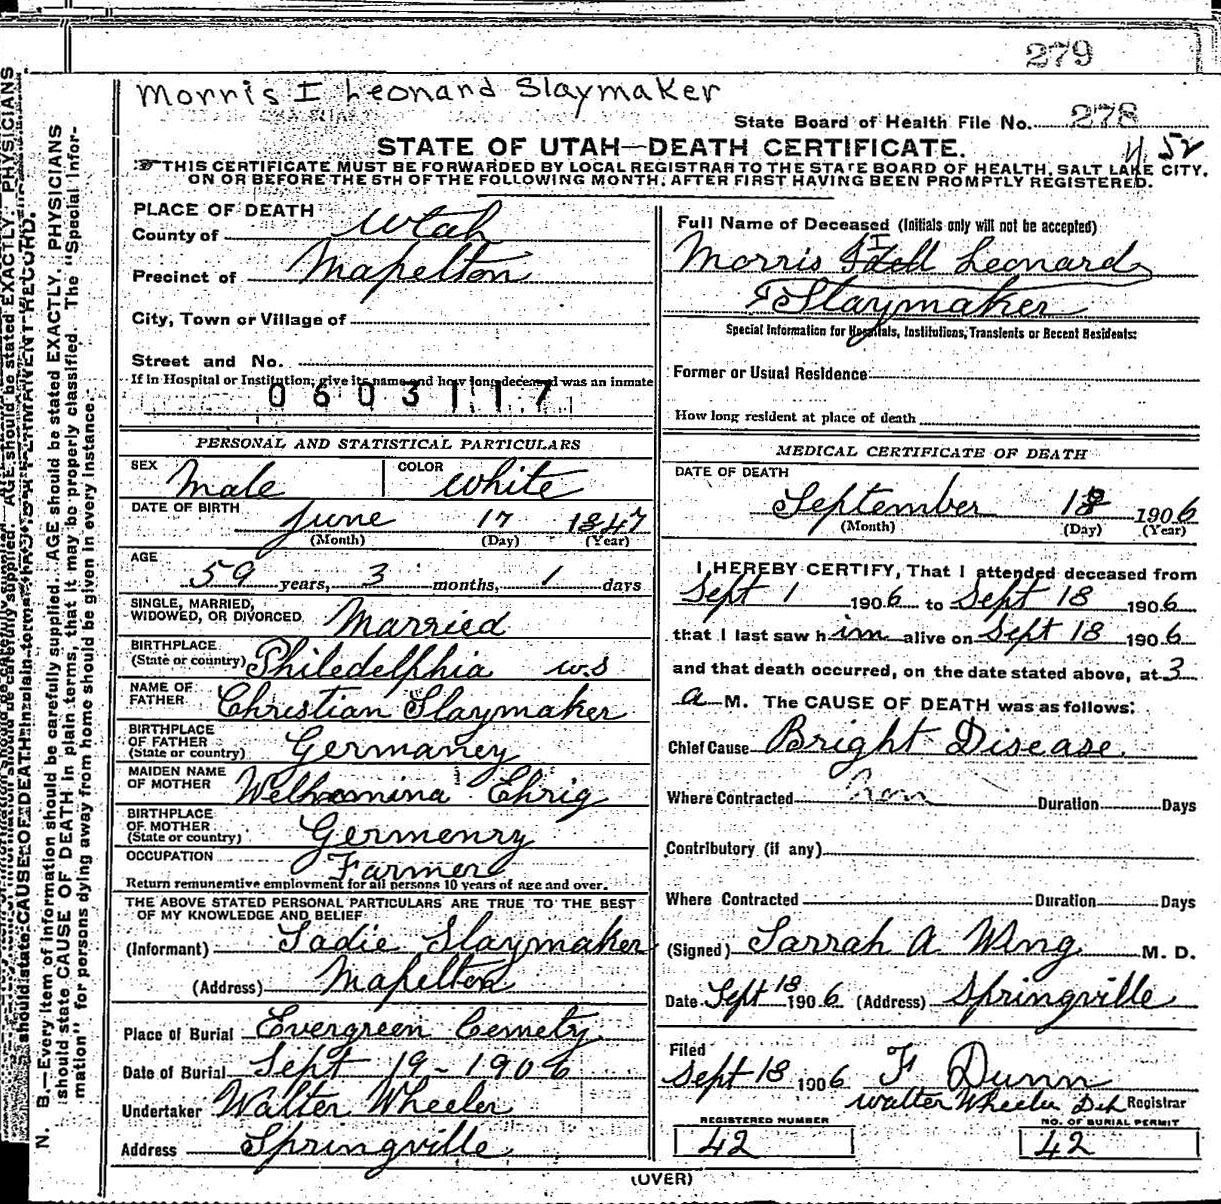 279
Morris I Leonard Slaymaker
State Board of Health File No. 278
STATE OF UTAH—DEATH CERTIFICATE.
THIS CERTIFICATE MUST BE FORWARDED BY LOCAL REGISTRAR TO THE STATE BOARD OF HEALTH, SALT LAKE CITY,
ON OR BEFORE THE 5TH OF THE FOLLOWING MONTH, AFTER FIRST HAVING BEEN PROMPTLY REGISTERED.
PLACE OF DEATH
County of Utah
Precinct of Mapelton
City, Town or Village of
Street and No.
If in Hospital or Institution, give its name and how long deceased was an inmate
0603117
PERSONAL AND STATISTICAL PARTICULARS
SEX Male COLOR White
DATE OF BIRTH June 17 1847
(Month) (Day) (Year)
AGE 59 years, 3 months, 1 days
SINGLE, MARRIED,
WIDOWED, OR DIVORCED Married
BIRTHPLACE
(State or country) Philedelphia U.S
NAME OF
FATHER Christian Slaymaker
BIRTHPLACE
OF FATHER
(State or country) Germaney
MAIDEN NAME
OF MOTHER Welhomina Ehrig
BIRTHPLACE
OF MOTHER
(State or country) Germenry
OCCUPATION Farmer
Return remunerative employment for all persons 10 years of age and over.
THE ABOVE STATED PERSONAL PARTICULARS ARE TRUE TO THE BEST
OF MY KNOWLEDGE AND BELIEF
(Informant) Sadie Slaymaker
(Address) Mapelton
Place of Burial Evergreen Cemety
Date of Burial Sept 19-1906
Undertaker Walter Wheeler
Address Springville
Full Name of Deceased (Initials only will not be accepted)
Morris I Leonard
Slaymaker
Special Information for Hospitals, Institutions, Transients or Recent Residents:
Former or Usual Residence
How long resident at place of death
MEDICAL CERTIFICATE OF DEATH
DATE OF DEATH
September 18 1906
(Month) (Day) (Year)
I HEREBY CERTIFY, That I attended deceased from
Sept 1 1906 to Sept 18 1906
that I last saw him alive on Sept 18 1906
and that death occurred, on the date stated above, at 3
a M. The CAUSE OF DEATH was as follows:
Chief Cause Bright Disease
Where Contracted Duration Days
Contributory (if any)
Where Contracted Duration Days
(Signed) Sarrah A Wing M. D.
Date Sept 18 1906 (Address) Springville
Filed
Sept 18 1906 F Dunn
Walter Wheeler Dep Registrar
REGISTERED NUMBER NO. OF BURIAL PERMIT
42 42
(OVER)
N. B.—Every item of information should be carefully supplied. AGE should be stated EXACTLY. PHYSICIANS
should state CAUSE OF DEATH in plain terms, that it may be properly classified. The "Special Infor-
mation" for persons dying away from home should be given in every instance.